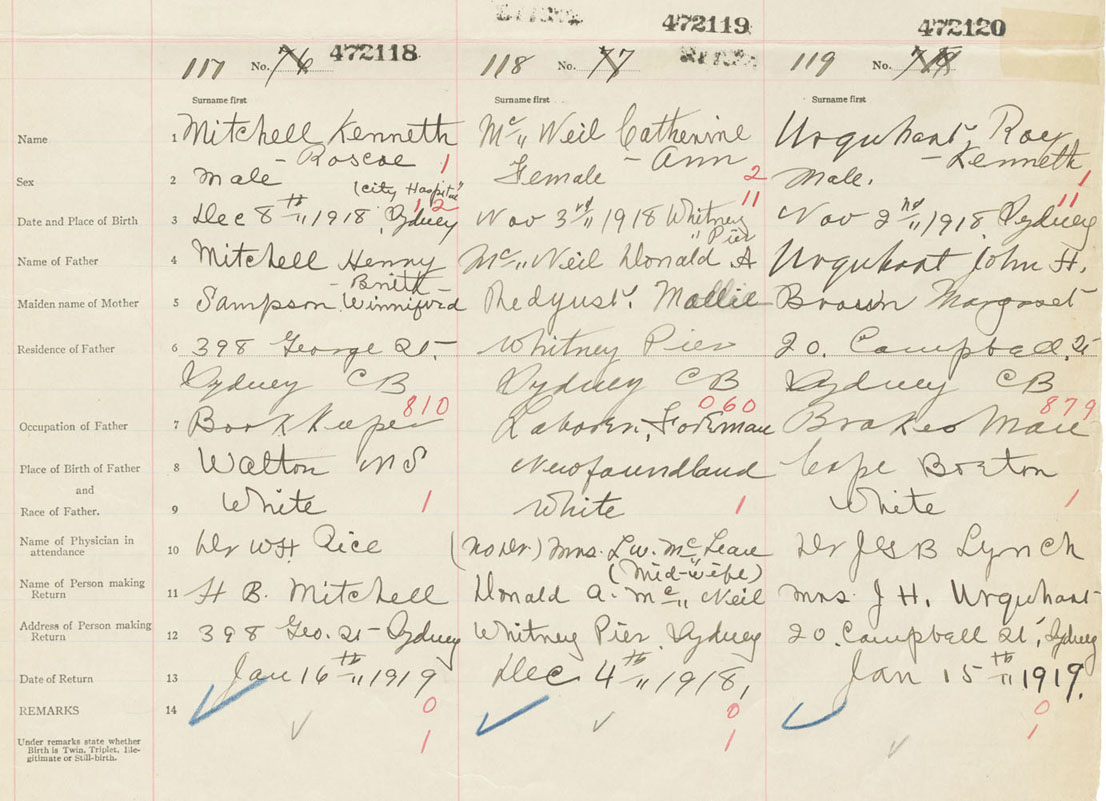 472119
472120
117 No. 76 472118
118 No. 77
119 No. 78
Surname first Surname first Surname first
Name 1 Mitchell Kenneth
- Roscoe 1
Mc„ Neil Catherine
- Ann
Urquhart Roy
- Kenneth
Sex 2 Male
Female 2
Male. 1
(City Hospital)
Date and Place of Birth 3 Dec 8th „ 1918, Sydney 12
Nov 3rd „ 1918 Whitney 11
„ Pier
Nov 2nd „ 1918, Sydney 11
Name of Father 4 Mitchell Henry
- Britt -
Mc„ Neil Donald A
Urquhart John H.
Maiden name of Mother 5 Sampson Winniford
Redjust, Mollie
Brown Margaret
Residence of Father 6 398 George St.
Sydney CB
Whitney Pier
Sydney CB
20. Campbell. St
Sydney CB
Occupation of Father 7 Book Keeper 810
Laborer, Foreman 060
Brakes Man 879
Place of Birth of Father 8 Walton NS
Newfoundland
Cape Breton
and
Race of Father. 9 White 1
White 1
White 1
Name of Physician in
attendance 10 Dr WH Rice
(no Dr.) Mrs. L.W. McLean
(Mid-wife)
Dr JGB Lynch
Name of Person making
Return 11 H B. Mitchell
Donald A. Mc„ Neil
Mrs. J H. Urquhart
Address of Person making
Return 12 398 Geo. St - Sydney
Whitney Pier, Sydney
20. Campbell St, Sydney
Date of Return 13 Jan 16th „ 1919
Dec 4th „ 1918,
Jan 15th „ 1919.
REMARKS 14 0 0 0
Under remarks state whether
Birth is Twin, Triplet, Ille-
gitimate or Still-birth.
1 1 1